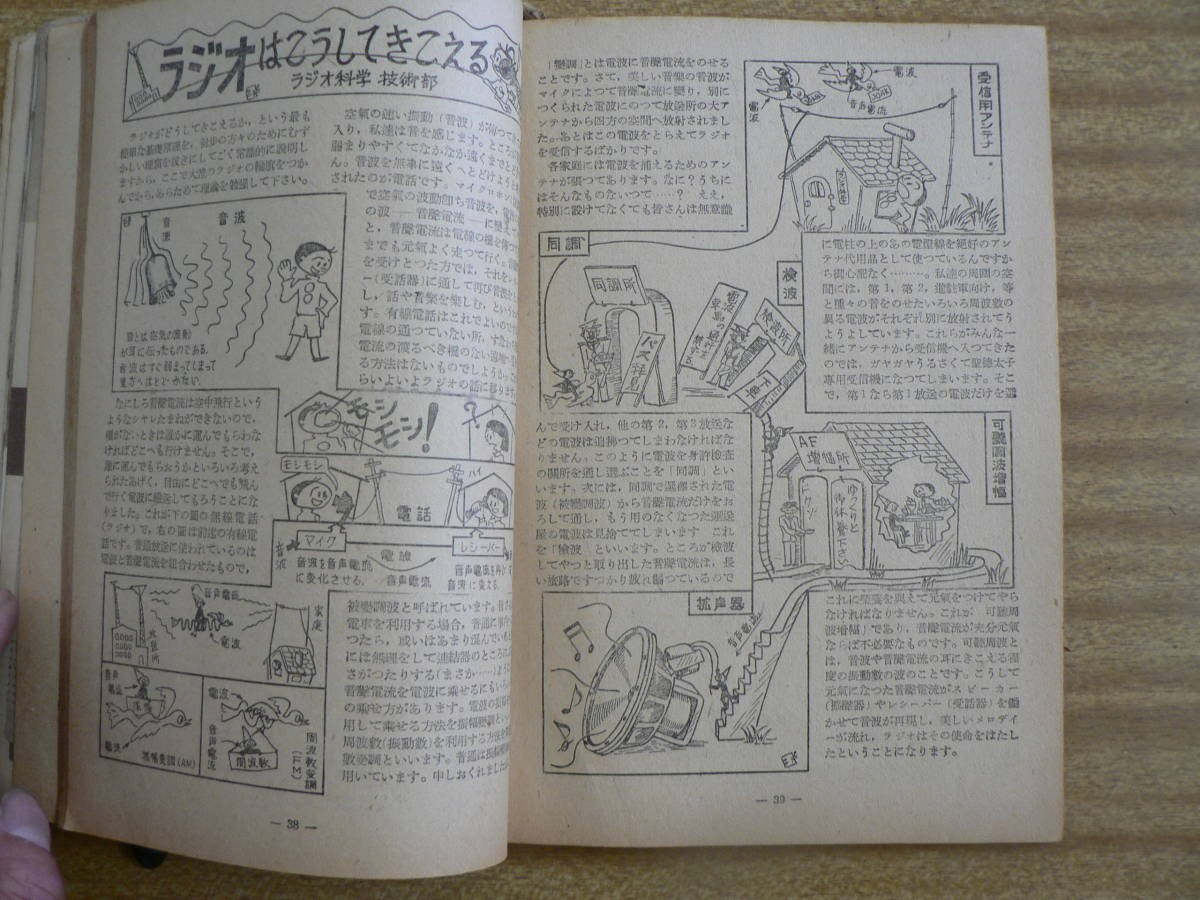 ラジオはこうしてきこえる
ラジオ科学 技術部
ラジオがどうしてきこえるか,という最も
簡單な基礎原理を,初步の方々のためにむず
かしい理窟を拔きにしてごく常識的に説明し
ますから,ここで大凡のラジオの輪廓をつか
んでから,あらためて理論を勉强して下さい。
空氣の速い振動(音波)が
入り,私達は音を感じます。ところが
弱まりやすくてなかなか遠くまでとど
ん。音波を無事に遠くへとどけようと
されたのが電話です。マイクロホン
で空氣の波動卽ち音波を,
の波――音聲電流――に變え
と,音聲電流は電線の橋を
までも元氣よく走つて行く。
を受けとつた方では,それを
ー(受話器)に通して再び音波と
し,話や音樂を樂しむ,という
す。有線電話はこれでよいので
電線の通つていない所,すなわ
電流の渡るべき橋のない場所
る方法はないものでしようか。
らいよいよラジオの話に移ります
音源
音波
音とは空気の振動
が耳に伝ったものである。
音波はすぐ弱まってしまって
遠方へはとどかない。
なにしろ音聲電流は空中飛行という
ようなシャレたまねができないので,
橋がないときは誰かに運んでもらわな
ければどこへも行けません。そこで,
誰に運んでもらおうかといろいろ考え
られたあげく,自由にどこへでも飛ん
で行く電波に搬送してもろうことにな
りました。これが下の圖の無線電話
(ラジオ)で,右の圖は前述の有線電
話です。普通放送に使われているのは
電波と音聲電流を組合わせたもので,
モシモシ!
モシモシ
ハイ
電話
マイク
電線
レシーバー
音波
音波を音声電流
に変化させる.
音声電流
音声電流を再び
音波に変える.
音声電流
電波
放送所
家庭
音声電流
電波
振幅変調(AM)
電波
音声電流
周波数
周波数変調(F.M)
被變調波と呼ばれています。
電車を利用する場合,普通に
つたら,或いはあまり混んでいる
には無理をして連結器のところに
さがつたりする(まさか……)よ
音聲電流を電波に乘せるにもいろ
の乘せ方があります。電波の振
用して乘せる方法を振幅變調とい
周波數(振動數)を利用する方法を
數變調といいます。普通は振幅
用いています。申しおくれました
― 38 ―
「變調」とは電波に音聲電流をのせる
ことです。さて,美しい音樂の音波が
マイクによつて音聲電流に變り,別に
つくられた電波にのつて放送所の大ア
ンテナから四方の空間へ放射されまし
た。あとはこの電波をとらえてラジオ
を受信するばかりです。
各家庭には電波を捕えるためのアン
テナが張つてあります。なに?うちに
はそんなものないつて……? ええ,
特別に設けてなくても皆さんは無意識
受信用アンテナ
電波
音声電流
電波
に電柱の上のあの電燈線を絶好のアン
テナ代用品として使つているんですか
ら御心配なく………。私達の周圍の空
間には,第1,第2,進駐軍向け,等
と種々の音をのせたいろいろ周波數の
異る電波がそれぞれ別に放射されてう
ようよしています。これらがみんな一
緒にアンテナから受信機へ入つてきた
のでは,ガヤガヤうるさくて聖德太子
專用受信機になつてしまいます。そこ
で,第1なら第1放送の電波だけを選
同調
同調所
パス拝見
検波
検波所
んで受け入れ,他の第2,第3放送な
どの電波は追拂つてしまわなければな
りません。このように電波を身許檢査
の關所を通し選ぶことを「同調」とい
います。次には,同調で選擇された電
波(被變調波)から音聲電流だけをお
ろして通し,もう用のなくなつた運送
屋の電波は見捨ててしまいます これ
を「檢波」といいます。ところが檢波
してやつと取り出した音聲電流は,長
い旅路ですつかり疲れ弱つているので
可聽周波増幅
AF
増幅所
ドーゾ
ゆっくりと
御休養下さい
拡声器
音声電流
これに榮養を與えて元氣をつけてやら
なければなりません。これが「可聽周
波增幅」であり,音聲電流が充分元氣
ならば不必要なものです。可聽周波と
は,音波や音聲電流の耳にきこえる程
度の振動數の波のことです。こうして
元氣になつた音聲電流がスピーカー
(擴聲器)やレシーバー(受話器)を働
かせて音波が再現し,美しいメロデイ
ーが流れ,ラジオはその使命をはたし
たということになります。
― 39 ―